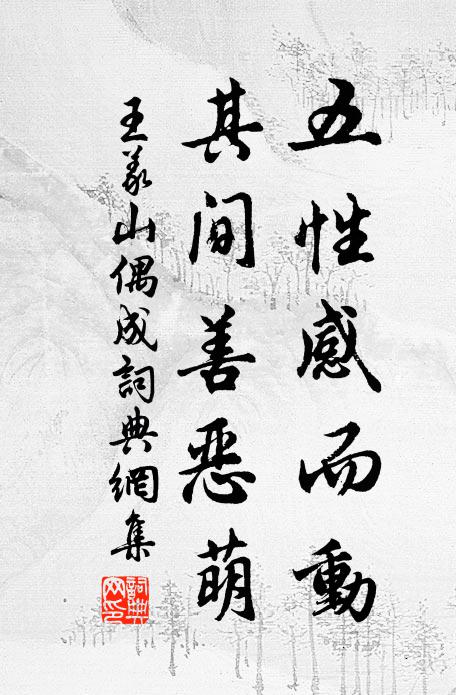 五性感而動
其间善恶萌
王義山偶成詞典網集
詞典
网印